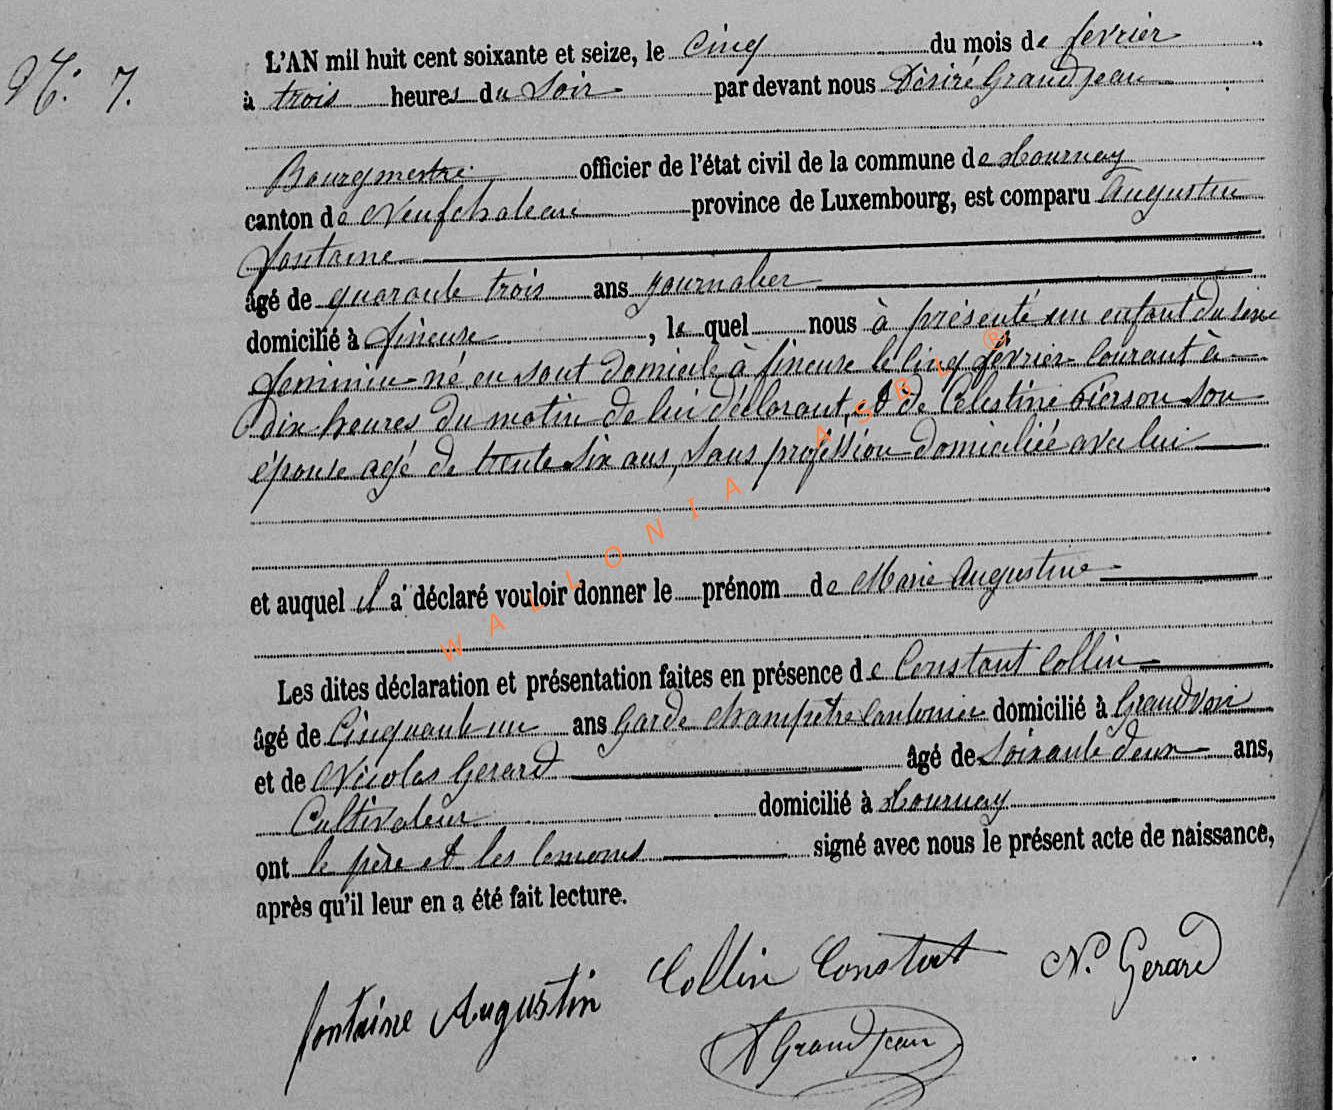 N°. 7.
L'AN mil huit cent soixante et seize, le Cinq du mois de fevrier
à trois heures du Soir par devant nous Désiré Grandjean
Bourgmestre officier de l'état civil de la commune de Tournay
canton de Neufchateau province de Luxembourg, est comparu Augustin
fontaine
âgé de quarante trois ans journalier
domicilié à fineuse, le quel nous à présenté un enfant du sexe
feminin né en sont domicile à fineuse le cinq février courant à
dix heures du matin de lui déclarant, et de Célestine Pierson son
épouse agé de trente six ans, sans proféssion domiciliée avec lui
et auquel il a déclaré vouloir donner le prénom de Marie Augustine
Les dites déclaration et présentation faites en présence de Constant Collin
âgé de Cinquante un ans Garde champêtre Cantonier domicilié à Grandvoir
et de Nicolas Gerard âgé de Soixante deux ans,
Cultivateur domicilié à Tournay
ont le père et les temoins signé avec nous le présent acte de naissance,
après qu'il leur en a été fait lecture.
fontaine Augustin Collin Constant N. Gerard
D Grandjean
WALLONIA ASBL ®